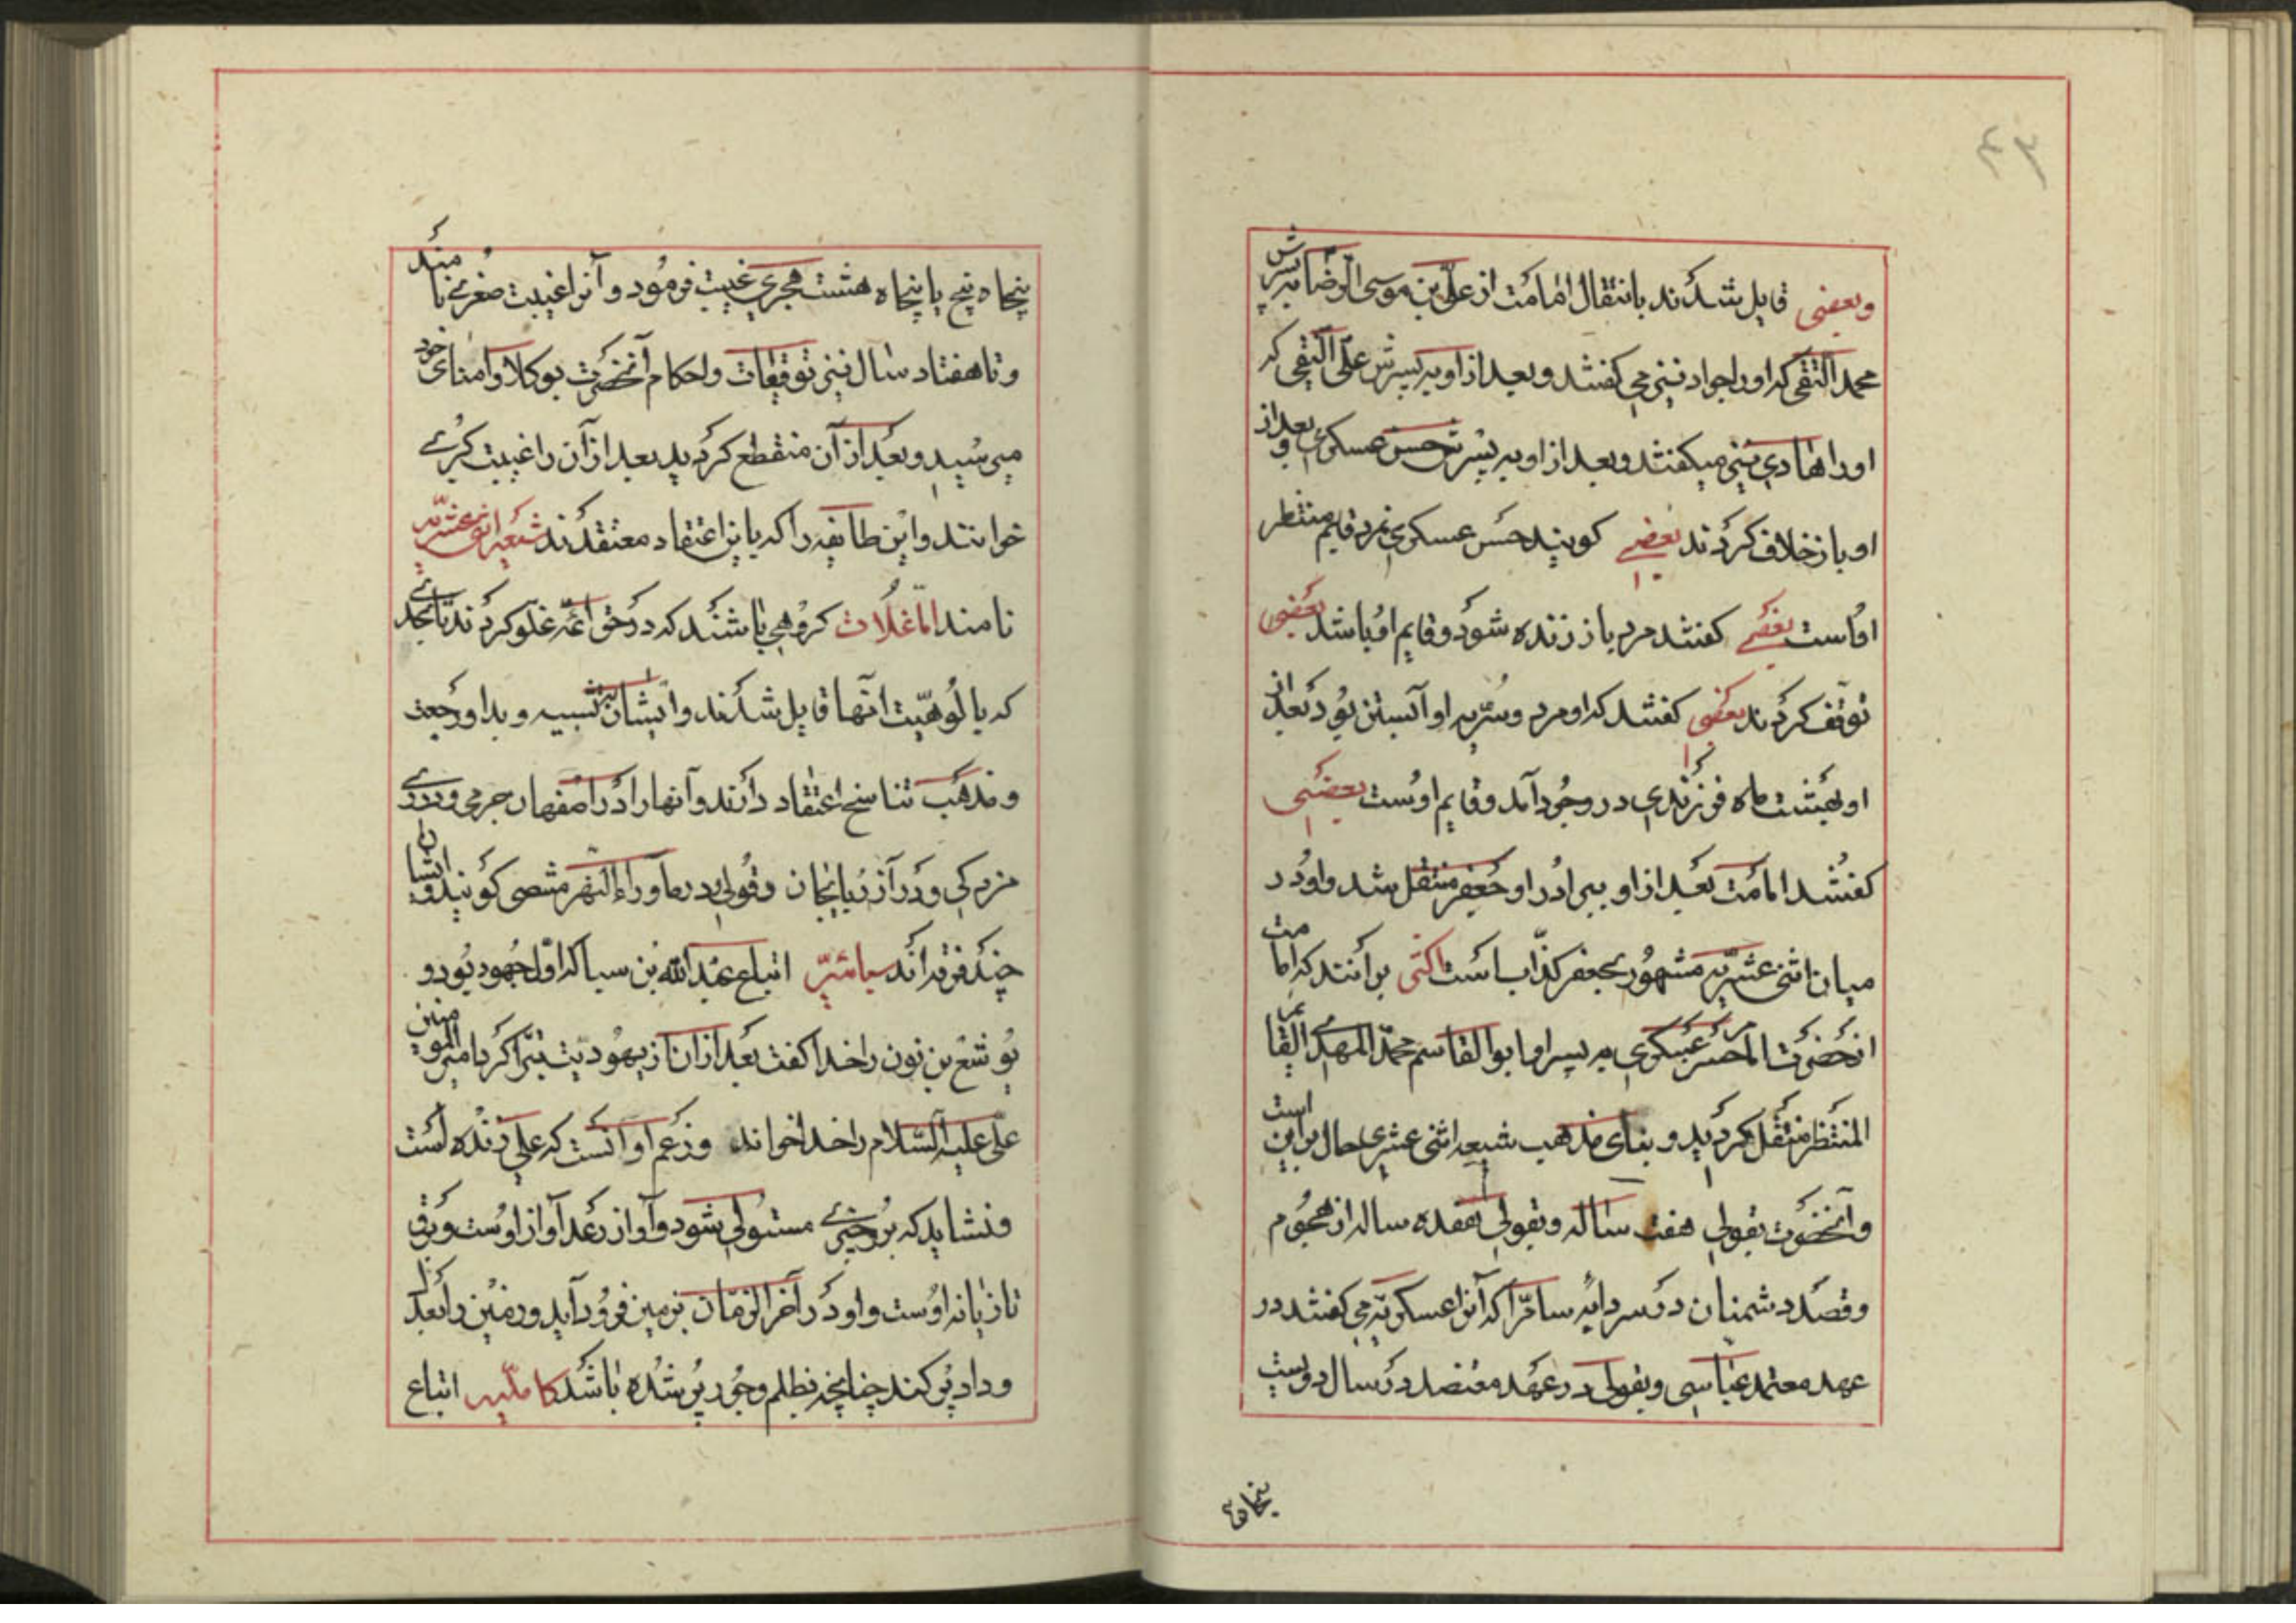 وبعضی قایل شدند بانتقال امامت از علی بن موسی الرضا بپسرش
محمد التقی که اورا جواد نیز می کفتند و بعد از او به پسرش علی النقی که
اورا هادی نیز میکفتند و بعد از او به پسرش حسن عسکری و بعد از
او باز خلاف کردند بعضی کویند حسن عسکری نمرد قایم منتظر
اوست بعضی کفتند مرد باز زنده شود و قایم او باشد بعضی
توقف کردند بعضی کفتند که او مرد و سریه او آبستن بود بعد از
او بهشت ماه فرزندی در وجود آمد و قایم اوست بعضی
کفتند امامت بعد از او ببرادر او جعفر منتقل شد و او در
میان اثنی عشریه مشهور بجعفر کذاب است اکثی برانند که امامت
انحضرت الحسن عسکری به پسر او ابو القاسم محمد المهدی القایم
المنتظر منتقل کردید و بنای مذهب شیعه اثنی عشری حال براین است
وآنحضرت بقولی هفت ساله و بقولی هفده ساله از هجوم
وقصد دشمنان در سردابه سامرا که آنرا عسکریه می کفتند در
عهد معتمد عباسی و بقولی در عهد معتضد در سال دویست
پنجاه
۴۳
پنجاه پنج یا پنجاه هشت هجری غیبت فرمود و آنرا غیبت صغری نامند
و تا هفتاد سال نیز توقیعات و احکام آنحضرت بوکلا و امنای خود
میرسید و بعد از آن منقطع کردید بعد از آن را غیبت کبری
خوانند و این طایفه را که باین اعتقاد معتقدند شیعه اثنی عشریه
نامند اما غلات کروهی باشند که در حق ائمه غلو کردند تا بحدی
که بالوهیت انها قایل شدند و ایشان بتشبیه و بدا و رجعت
و مذهب تناسخ اعتقاد دارند و آنها را در اصفهان خرمی و دری
مزدکی و در آذربایجان و قولی در ماوراء النهر مشصی کویند و ایشان
چند فرقه اند سبائیه اتباع عبد الله بن سبا که اول جهود بود و
یوشع بن نون را خدا کفت بعد از ان از یهودیت تبرا کرد امیر المومنین
علی علیه السلام را خدا خواند و زعم او آنست که علی زنده است
و نشاید که بر وی چیزی مستولی شود و آواز رعد آواز اوست و برق
تازیانه اوست و او در آخر الزمان بزمین فرود آید و زمین را بعدل
و داد پر کند چنانچه بظلم و جور پر شده باشد کاملیه اتباع